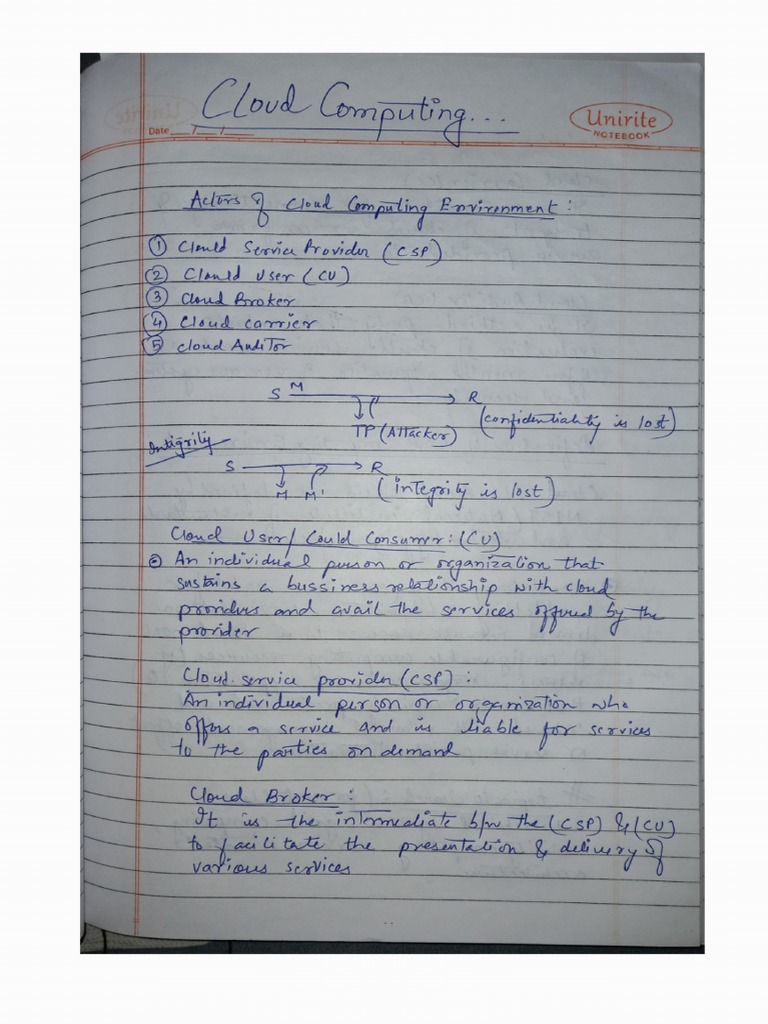 Cloud Computing...
Unirite
NOTEBOOK
Date / /
Actors of Cloud Computing Environment:
① Clould Service Provider (CSP)
② Clould User (CU)
③ Cloud Broker
④ Cloud carrier
⑤ cloud Auditor
S M R
TP (Attacker) (confidentiality is lost)
Intigrity
S R
M M' (integrity is lost)
Cloud User/Could Consumer: (CU)
An individual person or organization that
sustains a bussiness relationship with cloud
providers and avail the services offered by the
provider
Cloud service provider (CSP) :
An individual person or organization who
offers a service and is liable for services
to the parties on demand
Cloud Broker :
It is the intermediate b/w the (CSP) & (CU)
to facilitate the presentation & delivery of
various services